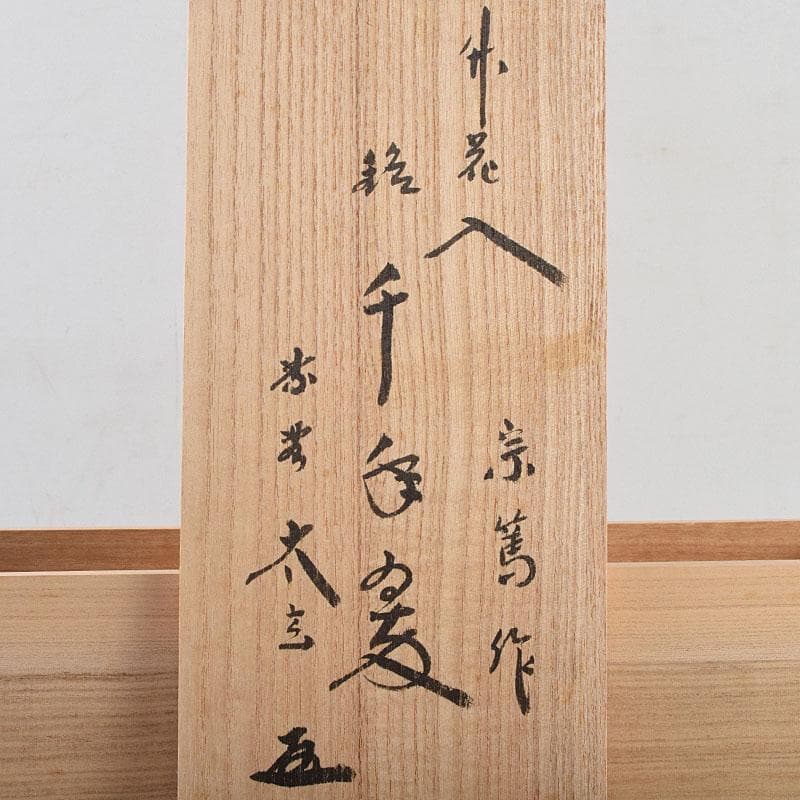 竹花入 宗篤作
銘 千年
紫野 太玄